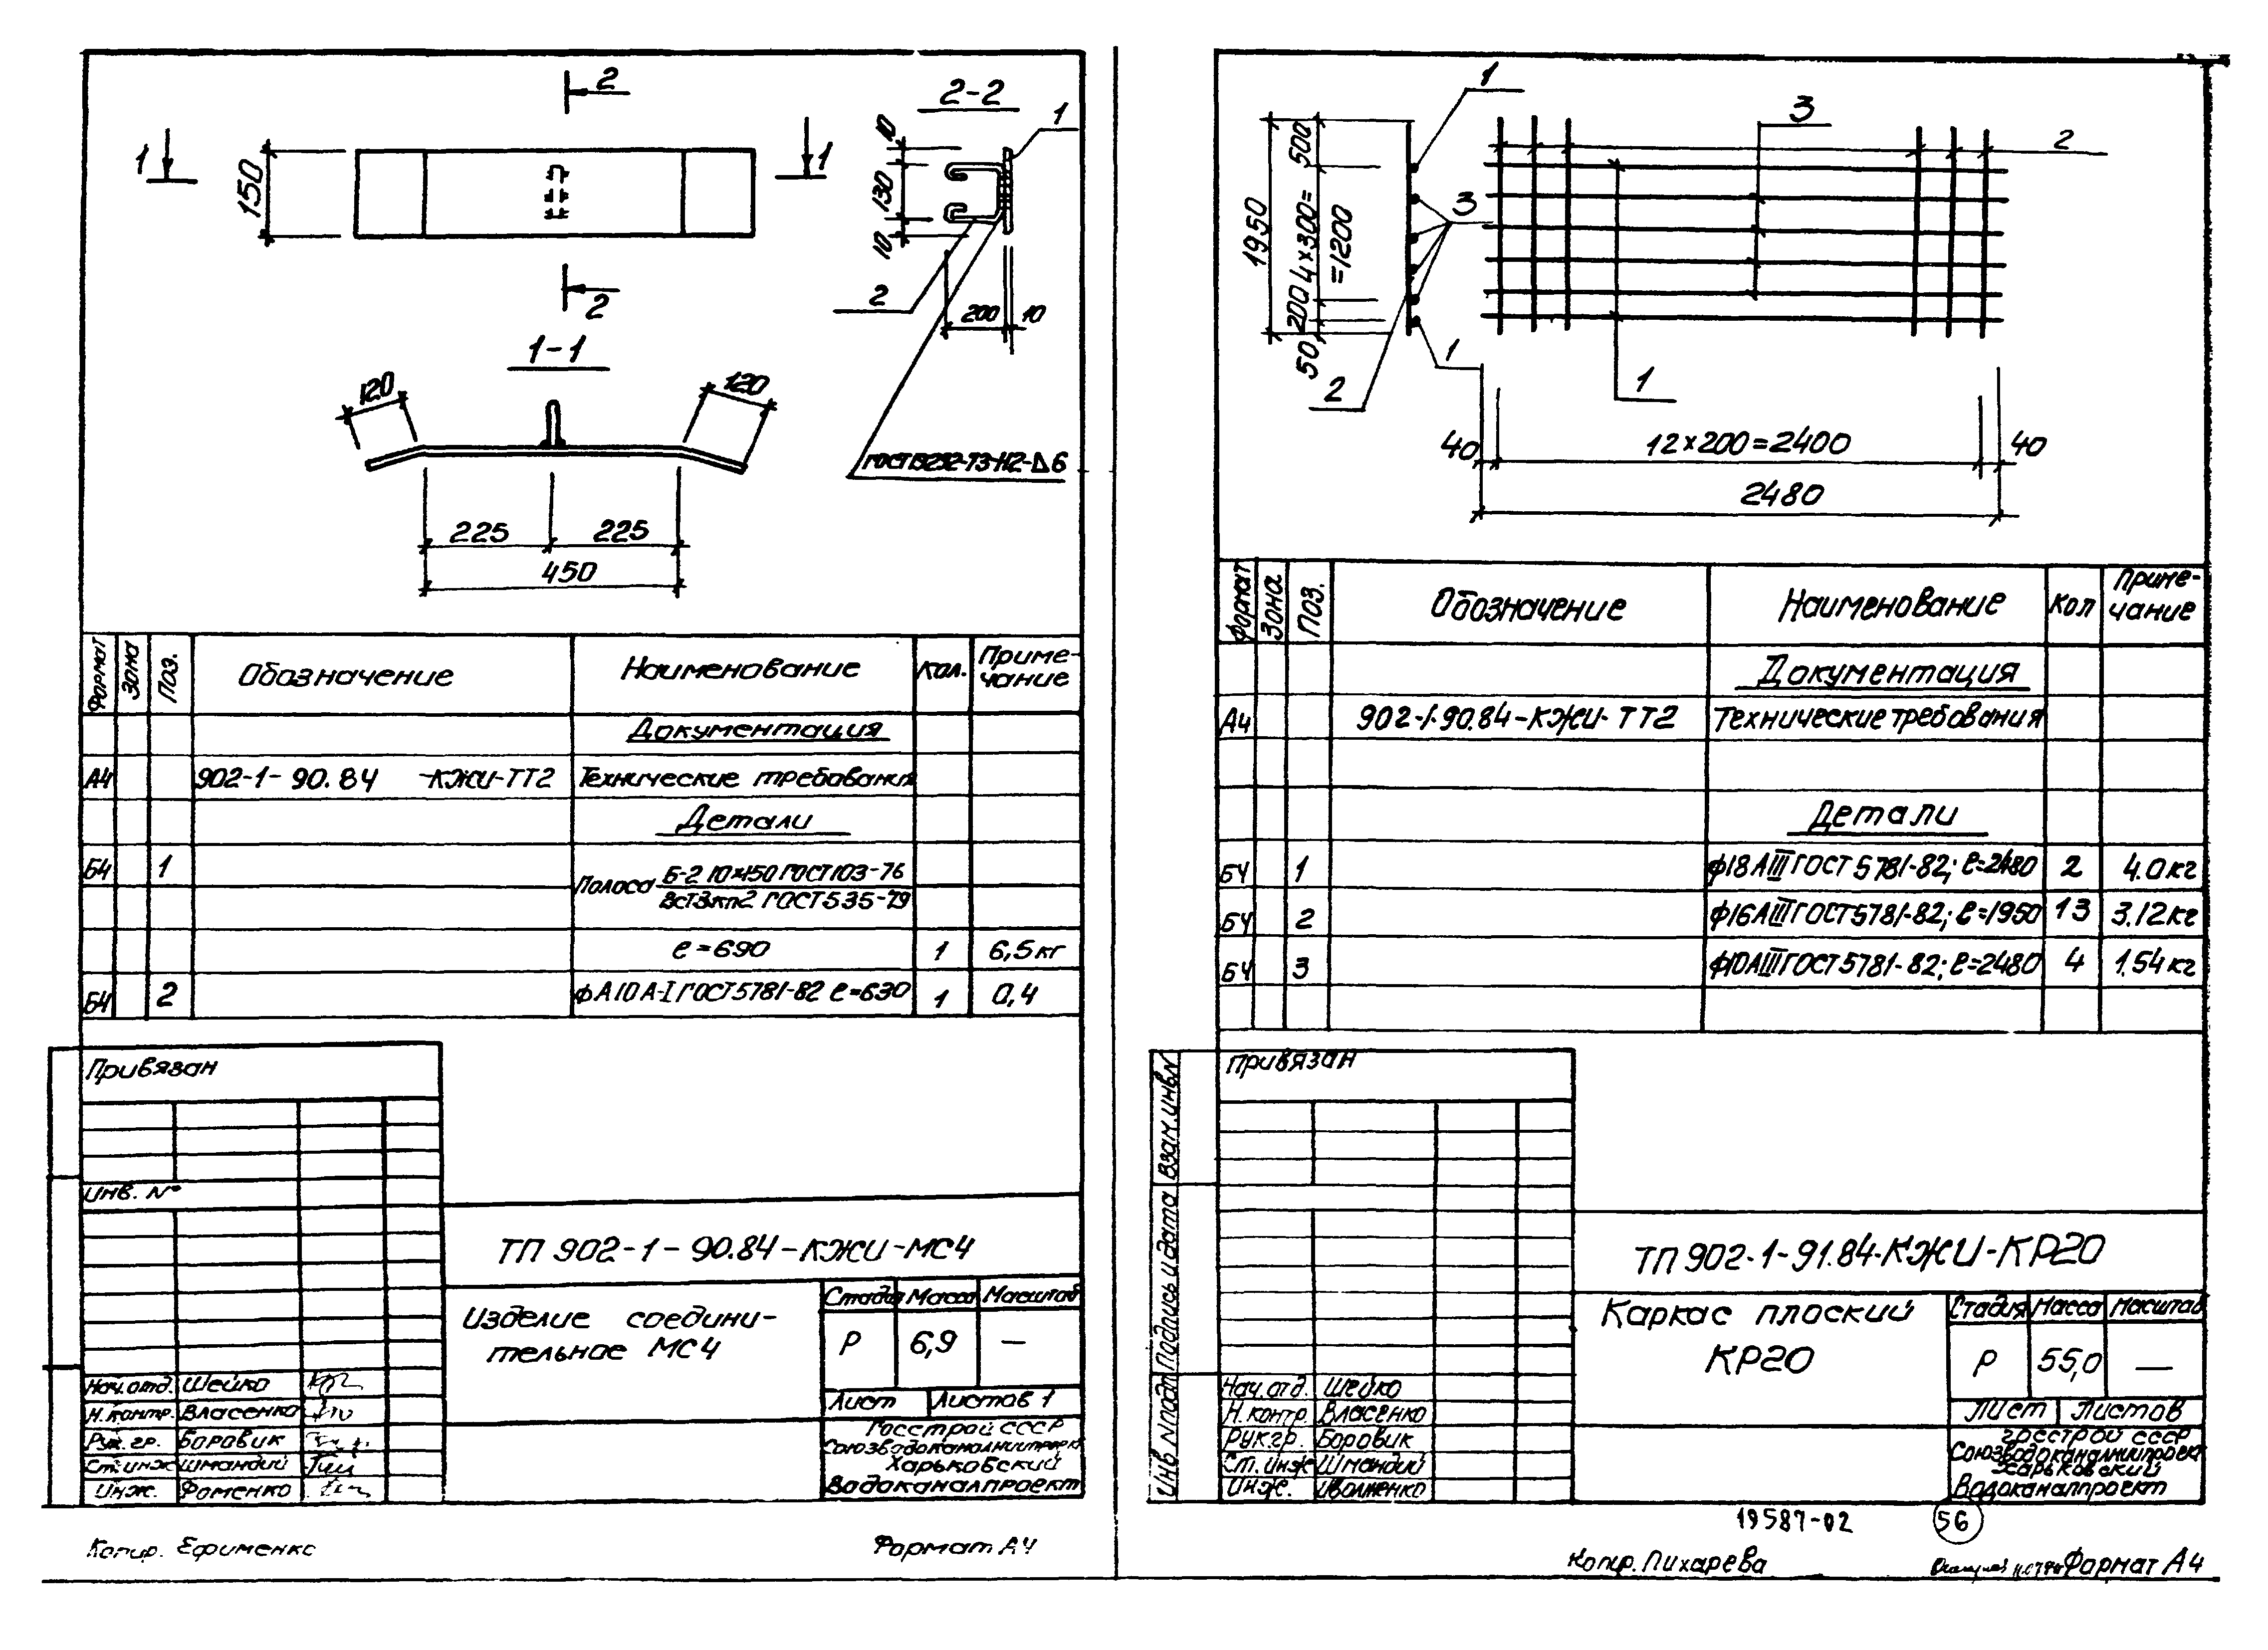 2
2-2
1
1
1
150
10
130
10
2
2
200
10
1-1
120
120
ГОСТ19292-73-Н2-Δ6
225
225
450
Формат
Зона
Поз.
Обозначение
Наименование
Кол.
Приме-
чание
Документация
А4
902-1-90.84 -КЖИ-ТТ2
Технические требования
Детали
Б4
1
Полоса Б-2 10×150 ГОСТ103-76
ВСт3кп2 ГОСТ535-79
ℓ=690
1
6,5кг
Б4
2
фА10А-I ГОСТ5781-82 ℓ=630
1
0,4
Привязан
Инв. №
ТП 902-1-90.84-КЖИ-МС4
Изделие соедини-
тельное МС4
Стадия
Масса
Масштаб
Р
6,9
—
Лист
Листов 1
Нач.отд. Шейко
Н.контр. Власенко
Рук. гр. Боровик
Ст.инж Шмандий
Инж. Фоменко
Госстрой СССР
Союзводоканалниипроект
Харьковский
Водоканалпроект
Копир. Ефименко
Формат А4
1
3
2
1950
500
4×300=
=1200
200
50
3
1
2
1
40
12×200=2400
40
2480
Формат
Зона
Поз.
Обозначение
Наименование
Кол
Приме-
чание
Документация
А4
902-1-90.84-КЖИ-ТТ2
Технические требования
Детали
Б4
1
ф18АIII ГОСТ5781-82; ℓ=2480
2
4.0кг
Б4
2
ф16АIII ГОСТ5781-82; ℓ=1950
13
3.12кг
Б4
3
ф10АIII ГОСТ5781-82; ℓ=2480
4
1.54кг
Привязан
Взам.инв.N
Подпись и дата
Инв.Nподл
ТП 902-1-91.84-КЖИ-КР20
Каркас плоский
КР20
Стадия
Масса
Масштаб
Р
55,0
—
Лист
Листов
Нач.отд. Шейко
Н.контр. Власенко
Рук.гр. Боровик
Ст.инж Шмандий
Инж.
Госстрой СССР
Союзводоканалниипроект
Харьковский
Водоканалпроект
19587-02
56
Копир. Пихарева
Формат А4